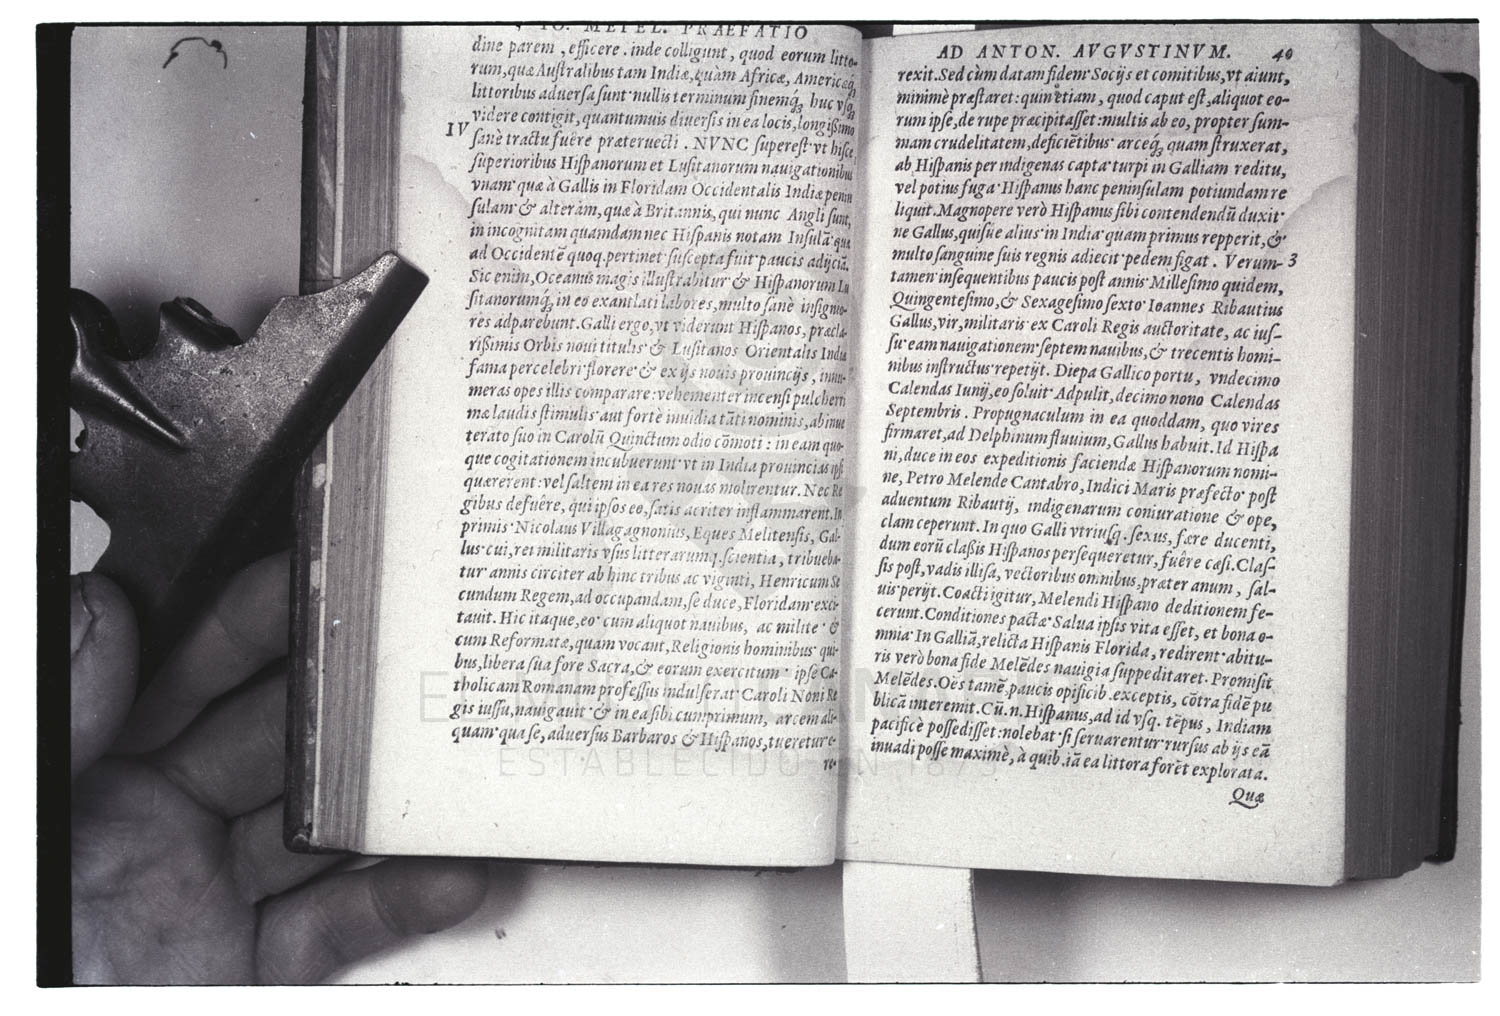 IO. METEL. PRAEFATIO
dine parem, efficere. inde colligunt, quod eorum litto-
rum, quæ Australibus tam Indiæ, quàm Africæ, Americæq́;
littoribus aduersa sunt nullis terminum finemq́; huc vsq́;
videre contigit, quantumuis diuersis in ea locis, longißimo
IV
sanè tractu fuêre præteruecti. NVNC superest vt hisce
superioribus Hispanorum et Lusitanorum nauigationibus
vnam quæ à Gallis in Floridam Occidentalis Indiæ penin
sulam & alteram, quæ à Britannis, qui nunc Angli sunt,
in incognitam quamdam nec Hispanis notam Insulā qua
ad Occidentē quoq. pertinet suscepta fuit paucis adijciā.
Sic enim, Oceanus magis illustrabitur & Hispanorum Lu
sitanorumq́; in eo exantlati labores, multo sanè insignio-
res adparebunt. Galli ergo, vt viderunt Hispanos, præcla-
rißimis Orbis noui titulis & Lusitanos Orientalis Indiæ
fama percelebri florere & ex ijs nouis prouincijs, innu-
meras opes illis comparare: vehementer incensi pulcherri
mæ laudis stimulis aut fortè inuidia tāti nominis, ab inue
terato suo in Carolū Quinctum odio cōmoti: in eam quo-
que cogitationem incubuerunt vt in India prouincias ipsi
quærerent: vel saltem in ea res nouas molirentur. Nec Re
gibus defuêre, qui ipsos eo, satis acriter inflammarent. In
primis Nicolaus Villagagnonius, Eques Melitensis, Gal-
lus cui, rei militaris vsus litterarumq. scientia, tribueba-
tur annis circiter ab hinc tribus ac viginti, Henricum Se
cundum Regem, ad occupandam, se duce, Floridam exci-
tauit. Hic itaque, eo cum aliquot nauibus, ac milite &
cum Reformatæ, quam vocant, Religionis hominibus qui-
bus, libera sua fore Sacra, & eorum exercitum ipse Ca-
tholicam Romanam professus indulserat Caroli Noni Re
gis iussu, nauigauit & in ea sibi cumprimum, arcem ali-
quam qua se, aduersus Barbaros & Hispanos, tueretur e-
re-
AD ANTON. AVGVSTINVM. 40
rexit. Sed cùm datam fidem Socijs et comitibus, vt aiunt,
minimè præstaret: quin etiam, quod caput est, aliquot eo-
rum ipse, de rupe præcipitasset: multis ab eo, propter sum-
mam crudelitatem, deficiētibus arceq́; quam struxerat,
ab Hispanis per indigenas capta turpi in Galliam reditu,
vel potius fuga Hispanus hanc peninsulam potiundam re
liquit. Magnopere verò Hispanus sibi contendendū duxit
ne Gallus, quisue alius in India quam primus repperit, &
multo sanguine suis regnis adiecit pedem figat. Verum-
3
tamen insequentibus paucis post annis Millesimo quidem,
Quingentesimo, & Sexagesimo sexto Ioannes Ribautius
Gallus, vir, militaris ex Caroli Regis auctoritate, ac ius-
su eam nauigationem septem nauibus, & trecentis homi-
nibus instructus repetijt. Diepa Gallico portu, vndecimo
Calendas Iunij, eo soluit Adpulit, decimo nono Calendas
Septembris. Propugnaculum in ea quoddam, quo vires
firmaret, ad Delphinum fluuium, Gallus habuit. Id Hispa
ni, duce in eos expeditionis faciendæ Hispanorum nomi-
ne, Petro Melende Cantabro, Indici Maris præfecto post
aduentum Ribautij, indigenarum coniuratione & ope,
clam ceperunt. In quo Galli vtriusq. sexus, fære ducenti,
dum eorū claßis Hispanos persequeretur, fuêre cæsi. Clas-
sis post, vadis illisa, vectoribus omnibus, præter anum, sal-
uis perijt. Coacti igitur, Melendi Hispano deditionem fe-
cerunt. Conditiones pactæ Salua ipsis vita esset, et bona o-
mnia In Galliā, relicta Hispanis Florida, redirent abitu-
ris verò bona fide Melēdes nauigia suppeditaret. Promisit
Melēdes. Oēs tamē, paucis opificib. exceptis, cōtra fidē pu
blicā interemit. Cū.n. Hispanus, ad id vsq. tēpus, Indiam
pacificè possedisset: nolebat si seruarentur rursus ab ijs eā
inuadi posse maximè, à quib. iā ea littora forēt explorata.
Quæ
ESTABLECIDO EN 1873